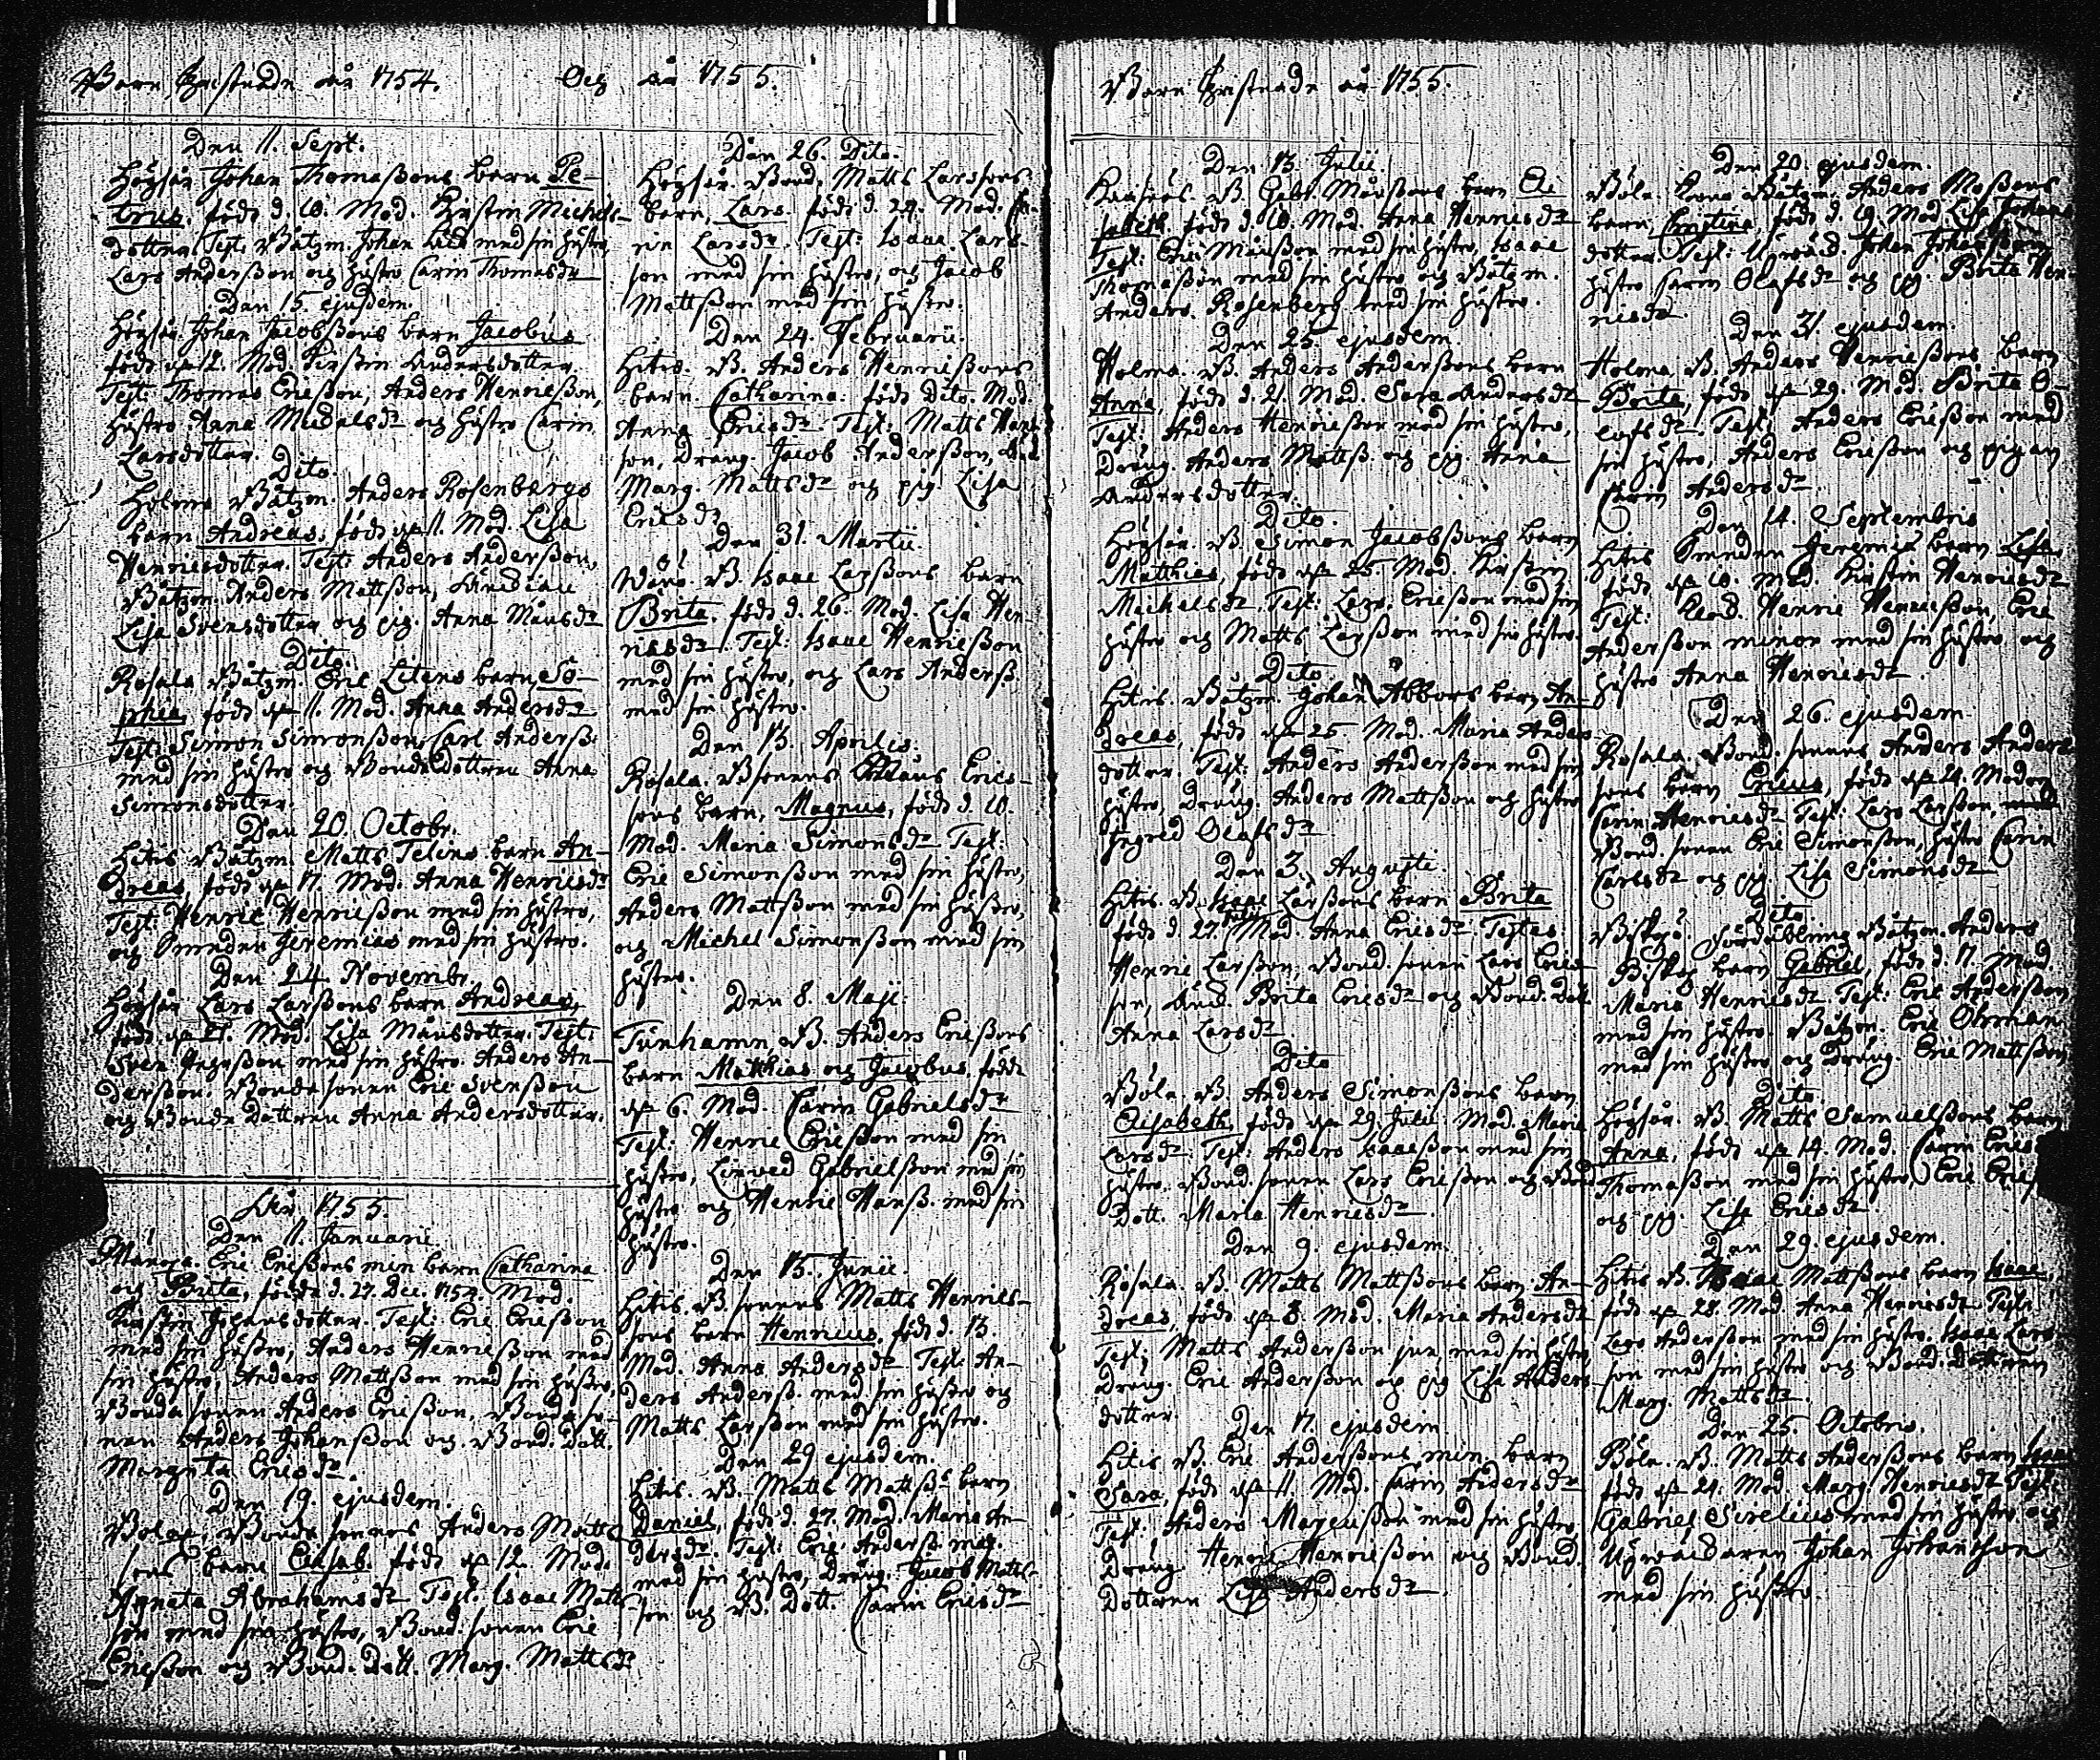 Barn Christnade åår 1754. Och åår 1755.
Den 11. Sept.
Högsår Johan Thomaßons barn Pe-
trus, födt d. 10. Mod. Kirstin Michels-
dotter. Test: Båtzm. Johan med sin hustro,
Lars Anderßon och hustro Carin Thomasdr
Dan 15. ejusdem.
Högsår Johan Jacobßons barn Jacobus
födt dn 12. Mod. Kirstin Andersdotter.
Test: Thomas Ericßon, Anders Henricßon,
hustro Anna Michelsdr och hustro Carin
Larsdotter.
Dito.
Holms Båtzm. Anders Rosenbergs
barn Andreas, födt dn 11. Mod. Lisa
Henricsdotter. Test: Anders Anderßon,
Båtzm. Anders Mattßon,
Lisa Svensdotter och pig. Anna Månsdr
Dito.
Rosala Båtzm. Eric Litens barn So-
phia, födt dn 11. Mod. Anna Andersdr
Test: Simon Simonßon, Carl Anderß.
med sin hustro och Bondedottren Anna
Simonsdotter.
Dan 20. Octobr.
Hitis Båtzm. Matts Telins barn An-
dreas, födt dn 17. Mod. Anna Henricsdr
Test: Henric Henricßon med sin hustro,
och Smeden Jeremias med sin hustro.
Dan 24. Novembr.
Högsår Lars Larßons barn Andreas,
födt dn 21. Mod. Lisa Månsdotter. Test:
Sven med sin hustro. Anders An-
derßon. Bonde sonen Eric Svenßon
och Bonde Dottren Anna Andersdotter.
Åår 1755.
Den 11. Januarii.
Eric Ericßons min barn Catharina
och Brita, födde d. 27. Dec. 1754. Mod.
Kirstin Johansdotter. Test: Eric Ericßon
med sin hustro, Anders Henricßon med
sin hustro, Anders Mattßon med sin hustro,
Bonde sonen Anders Ericßon, Bonde so-
nen Anders Johanßon och Bond. Dott.
Margeta Ericsdr.
Den 19. ejusdem.
Bölax, Bonde sonens Anders Matts
sons barn Elisab. födt dn 12. Mod.
Agneta Abrahamsdr Test. Isaac Matts
son med sin hustro, Bond. sonen Eric
Ericßon och Bond. Dott. Marg. Mattsdr
Dan 26. Dito.
Högsår. Bond. Matts Larssons
barn, Lars. födt d. 24. Mod. Ca-
rin Larsdr. Test: Isaac Lars-
son med sin hustro, och Jacob
Mattßon med sin hustro.
Den 24. Februarii.
Hitis. B. Anders Henricßons
barn Catharina. födt Dito. Mod.
Anna Ericsdr. Test: Matts
son, Dräng. Jacob Anderßon,
Marg. Mattsdr och pig. Lisa
Ericsdr
Den 31. Martii.
Wänö. B. Isaac Larßons barn
Brita, födt d. 26. Mod. Lisa Hen-
ricsdr. Test: Isaac Henricßon
med sin hustro, och Lars Anderß.
med sin hustro.
Den 13. Aprilis.
Rosala. B. sonens Måns Erics-
sons barn, Magnus, födt d. 10.
Mod. Maria Simonsdr Test:
Eric Simonßon med sin hustro,
Anders Mattßon med sin hustro,
och Michel Simonßon med sin
hustro.
Den 8. Maji.
Tunhamn. B. Anders Ericßons
barn Matthias och Jacobus, födde
dn 6. Mod. Carin Gabrielsdr
Test: Henric Ericßon med sin
hustro, Linved Gabrielßon med sin
hustro och Henric Hanß. med sin
hustro.
Den 15. Junii.
Hitis. B. sonens Matts Henrics-
sons barn Henricus, födt d. 13.
Mod. Anna Andersdr Test: An-
ders Anderß. med sin hustro och
Matts Larßon med sin hustro.
Den 29 ejusdem.
Hitis. B. Matts Mattßs barn
Daniel, födt d. 27. Mod. Maria An-
dersdr. Test: Eric Anderß. maj.
med sin hustro, Dräng. Jacob Matts-
son och B. Dott. Carin Ericsdr
Barn Christnade åår 1755.
Den 13. Julii
B. Gabr. Månßons barn Eli-
sabeth, födt d. 10. Mod. Anna Henricsdr
Test: Eric Månßon med sin hustro, Isaac
Thomaßon med sin hustro och Båtzm.
Anders Rosenberg med sin hustro.
Den 25. ejusdem.
Holma. B. Anders Anderßons barn
Anna, födt d. 21. Mod. Sara Andersdr
Test: Anders Henricßon med sin hustro,
Dräng. Anders Mattß. och pig. Anna
Andersdotter.
Dito.
Högsår. B. Simon Jacobßons barn
Matthias, födt dn 25 Mod. Kirstin
Michelsdr, Test: Lars Ericßon med sin
hustro och Matts Larßon med sin hustro.
Dito.
Hitis. Båtzm. Johan Abbors barn An-
dreas, födt dn 25. Mod. Maria Anders-
dotter. Test: Anders Anderßon med sin
hustro, Dräng. Anders Mattßon och hustro
Ingred Olafsdr
Den 3. Augusti.
Hitis. B. Isaac Larßons barn Brita
födt d. 27. Julii Mod. Anna Ericsdr Testes
Henric Larßon, Bond. sonen Lars Erics-
son, Brita Ericsdr och Bond. Dott
Anna Larsdr
Dito
Böle. B. Anders Simonßons barn
Elisabeth, födt dn 29. Julii. Mod. Maria
Larsdr. Test: Anders Isaacßon med sin
hustro. Bond. sonen Lars Ericßon och Bond
Dott. Maria Henricsdr.
Den 9. ejusdem.
Rosala. B. Matts Mattßons barn An-
dreas, födt dn 8. Mod. Maria Andersdr
Test: Matts Anderßon jun. med sin hustro,
Dräng. Eric Anderßon och pig Lisa Anders-
dotter.
Den 17. ejusdem
Hitis B. Eric Anderßons min. barn
Sara, födt dn 11. Mod. Carin Andersdr
Test. Anders Marcußon med sin hustro,
Dräng Henric Henricßon och Bond.
Dottren Lisa Andersdr.
Den 20. ejusdem.
Böle. Båtzm. Anders
barn Christina, födt d. 19. Mod. Lisa Johans
dotter. Test: Johan Johanßon,
hustro Carin Olafsdr och pig. Brita Hen-
ricsdr.
Den 31. ejusdem.
Holma. B. Anders Henricßons barn
Brita, födt dn 29. Mod. Brita O-
lafsdr. Test: Anders Ericßon med
sin hustro, Anders Ericßon och pigan
Carin Andersdr.
Den 14. Septembris
Hitis Smeden Jeremiæ barn Lisa
födt dn 10. Mod. Kirstin Henricsdr
Test: Henric Henricßon, Eric
Anderßon minor med sin hustro och
hustro Anna Henricsdr.
Den 26. ejusdem.
Rosala. Bond. sonens Anders Anders-
sons barn Ericus, födt dn 21. Modren
Carin Henricsdr Test: Lars Larßon,
Bond. sonen Eric Simonßon, hustro Carin
Carlsdr och pig Lisa Simonsdr
Dito.
Båtzm. Anders
Biskop barn Gabriel, födt d. 17. Mod.
Maria Henricsdr Test: Eric Anderßon
med sin hustro. Båtzm. Eric Öhrman
med sin hustro och Dräng. Eric Mattßon.
Dito.
Högsår. B. Matts Samuelßons barn
Anna, födt dn 14. Mod. Carin Erics
Thomaßon med sin hustro, Eric
och pig. Lisa Ericsdr
Den 29. ejusdem.
Hitis B. Isaac Mattßons barn Isaac,
födt dn 28. Mod. Anna Henricsdr Test:
Lars Anderßon med sin hustro. Isaac Lars-
son med sin hustro och Bond. Dottren
Marg. Mattsdr.
Den 25. Octobris.
Böle. B. Matts Anderßons barn Isaac
födt dn 24. Mod Marg. Henricsdr Test:
Gabriel Sirelius med sin hustro och
Johan Johanßon
med sin hustro.